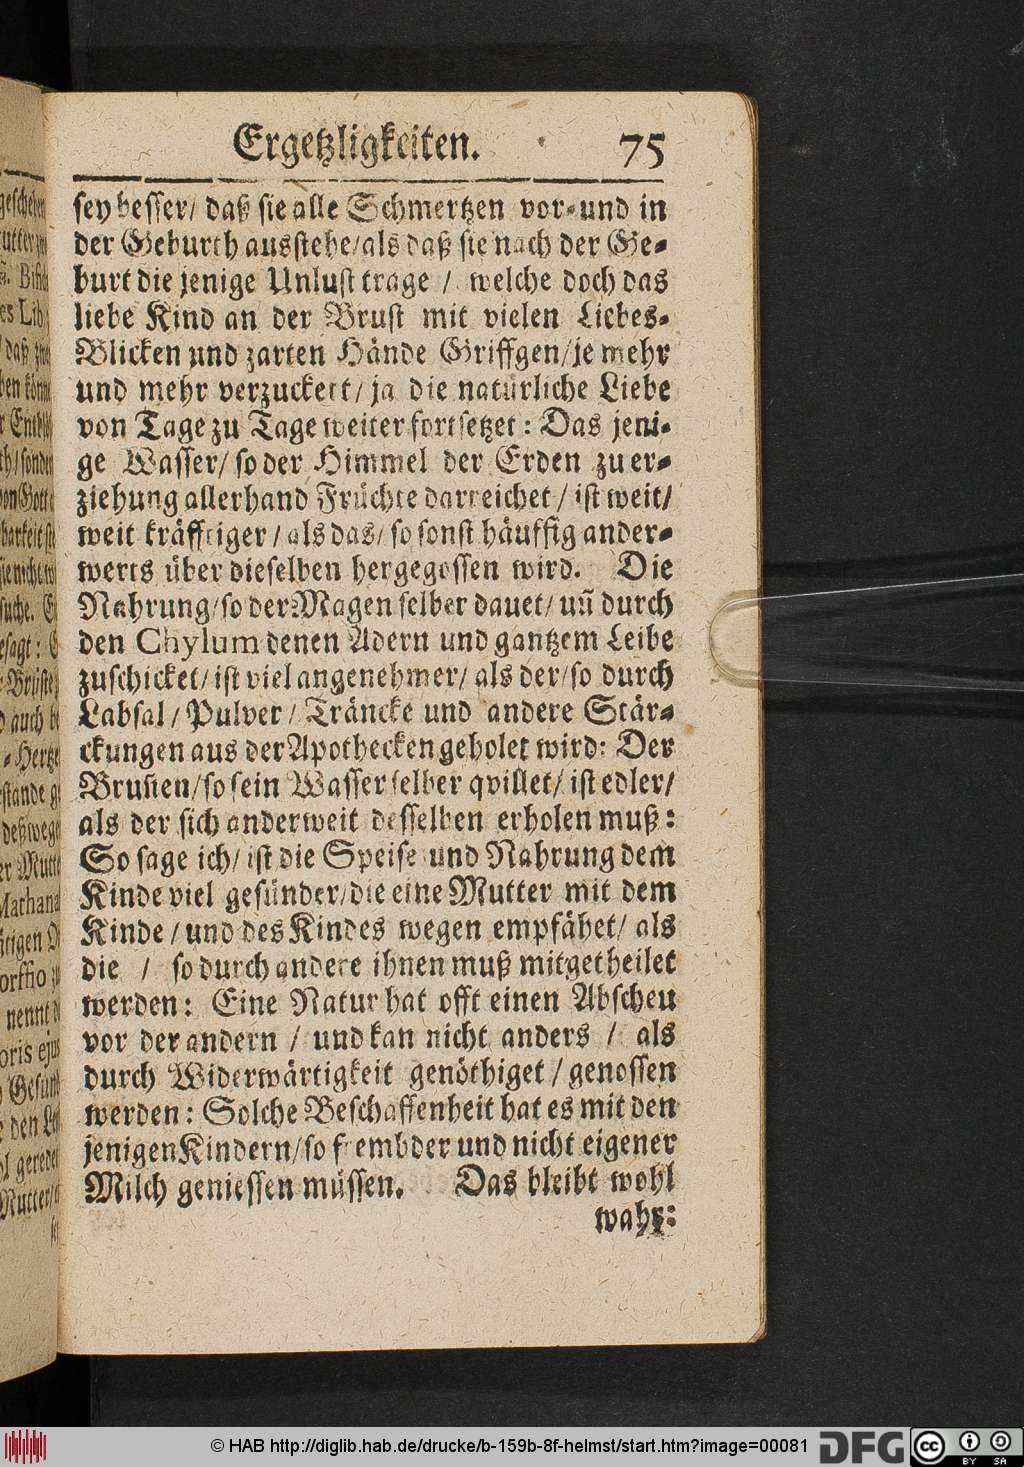 Ergetzligkeiten. 75
sey besser/ daß sie alle Schmertzen vor-und in
der Geburth ausstehe/als daß sie nach der Ge-
burt die jenige Unlust trage / welche doch das
liebe Kind an der Brust mit vielen Liebes-
Blicken und zarten Hände Griffgen/je mehr
und mehr verzuckert/ ja die natürliche Liebe
von Tage zu Tage weiter fortsetzet: Das jeni-
ge Wasser/ so der Himmel der Erden zu er-
ziehung allerhand Früchte darreichet / ist weit/
weit kräfftiger / als das/ so sonst häuffig ander-
werts über dieselben hergegossen wird. Die
Nahrung/so der Magen selber dauet/ uñ durch
den Chylum denen Adern und gantzem Leibe
zuschicket/ ist viel angenehmer/ als der/so durch
Labsal / Pulver / Träncke und andere Stär-
ckungen aus der Apothecken geholet wird: Der
Brunen/so sein Wasser selber qvillet/ ist edler/
als der sich anderweit desselben erholen muß:
So sage ich/ ist die Speise und Nahrung dem
Kinde viel gesünder/die eine Mutter mit dem
Kinde / und des Kindes wegen empfähet/ als
die / so durch andere ihnen muß mitgetheilet
werden: Eine Natur hat offt einen Abscheu
vor der andern / und kan nicht anders / als
durch Widerwärtigkeit genöthiget / genossen
werden: Solche Beschaffenheit hat es mit den
jenigen Kindern/so frembder und nicht eigener
Milch geniessen müssen. Das bleibt wohl
wahr:
© HAB http://diglib.hab.de/drucke/b-159b-8f-helmst/start.htm?image=00081 DFG cc BY SA